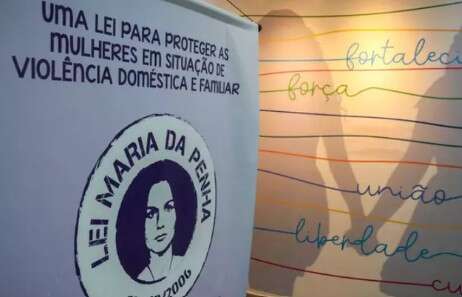 UMA LEI PARA PROTEGER AS
MULHERES EM SITUAÇÃO DE
VIOLÊNCIA DOMÉSTICA E FAMILIAR
LEI MARIA DA PENHA
2006
fortaleci
força
união
liberdade
cu